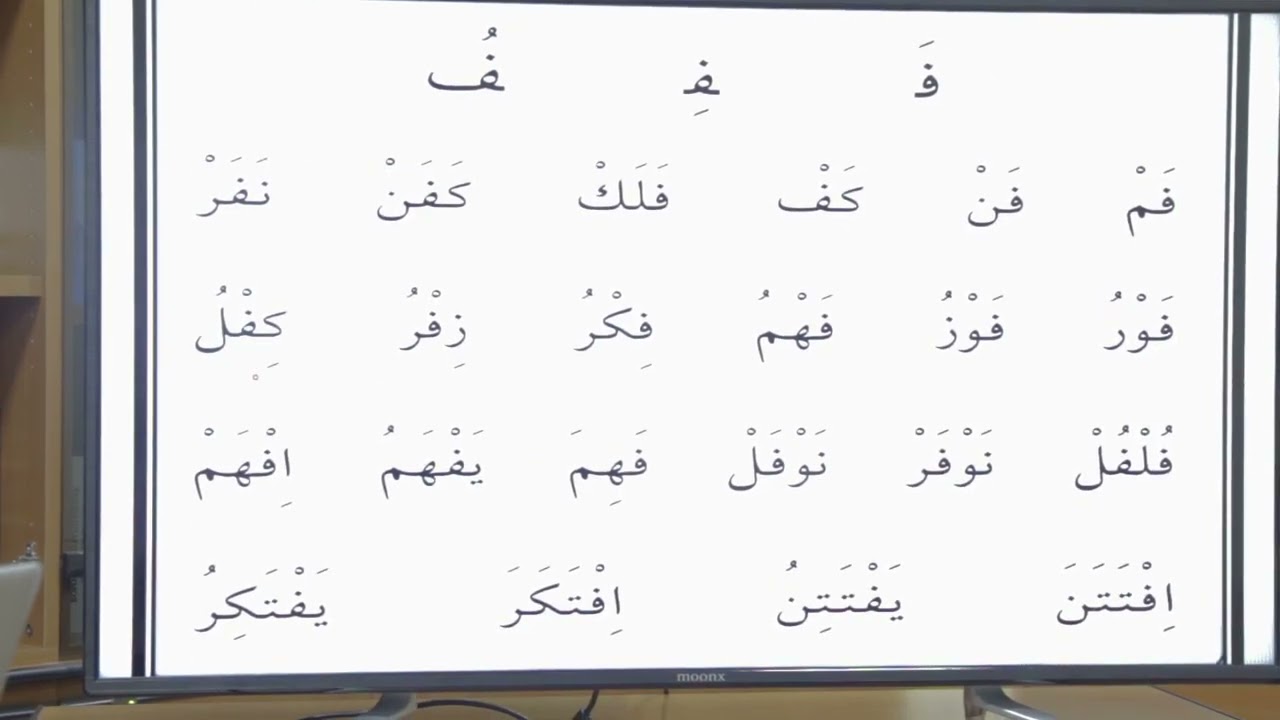 فَ فِ فُ
فَمْ فَنْ كَفْ فَلَكْ كَفَنْ نَفَرْ
فَوْرُ فَوْزُ فَهْمُ فِكْرُ زِفْرُ كِفْلُ
فُلْفُلْ نَوْفَرْ نَوْفَلْ فَهِمَ يَفْهَمُ اِفْهَمْ
اِفْتَتَنَ يَفْتَتِنُ اِفْتَكَرَ يَفْتَكِرُ
moonx